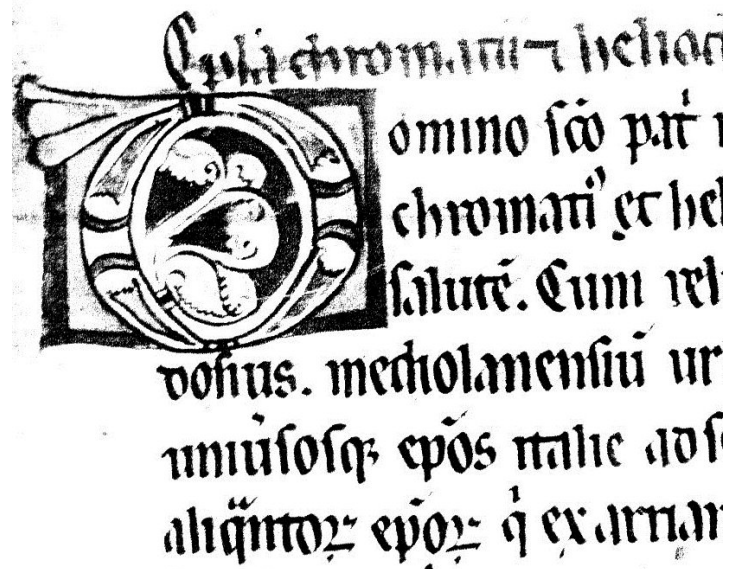 Epl̄a chromatii ⁊ helioci
Domino sc̄o pat̉
chromati᾽ et hel
salutē. Cum rel
dosius. mechiolanensiū ur
uniūsosq; ep̄os italie ad s
aliq̄ntoꝝ ep̄oꝝ q̉ ex arrian